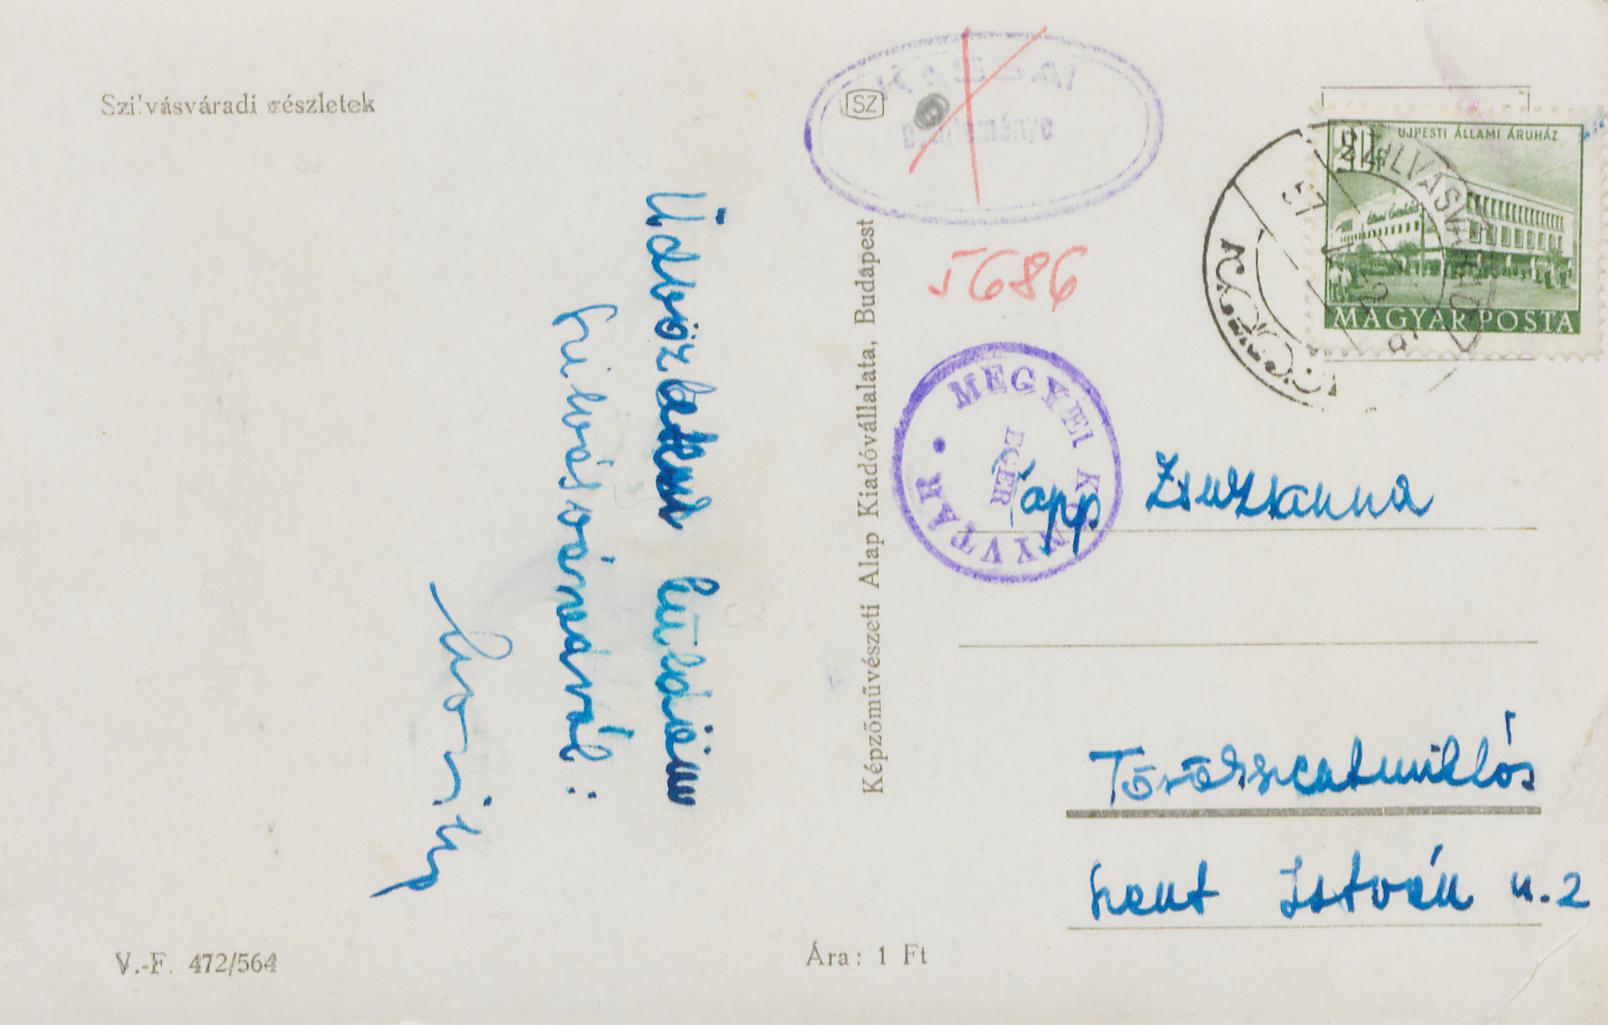 Szilvásváradi részletek
SZ
KASSAI
gyűjteménye
5686
ÚJPESTI ÁLLAMI ÁRUHÁZ
SZILVÁSVÁRAD
57
MAGYAR POSTA
MEGYEI KÖNYVTÁR
EGER
Üdvözletem küldöm
Szilvásváradról:
Képzőművészeti Alap Kiadóvállalata, Budapest
Papp Zsuzsanna
Törökszentmiklós
Szent István u. 2
V.-F. 472/564
Ára: 1 Ft